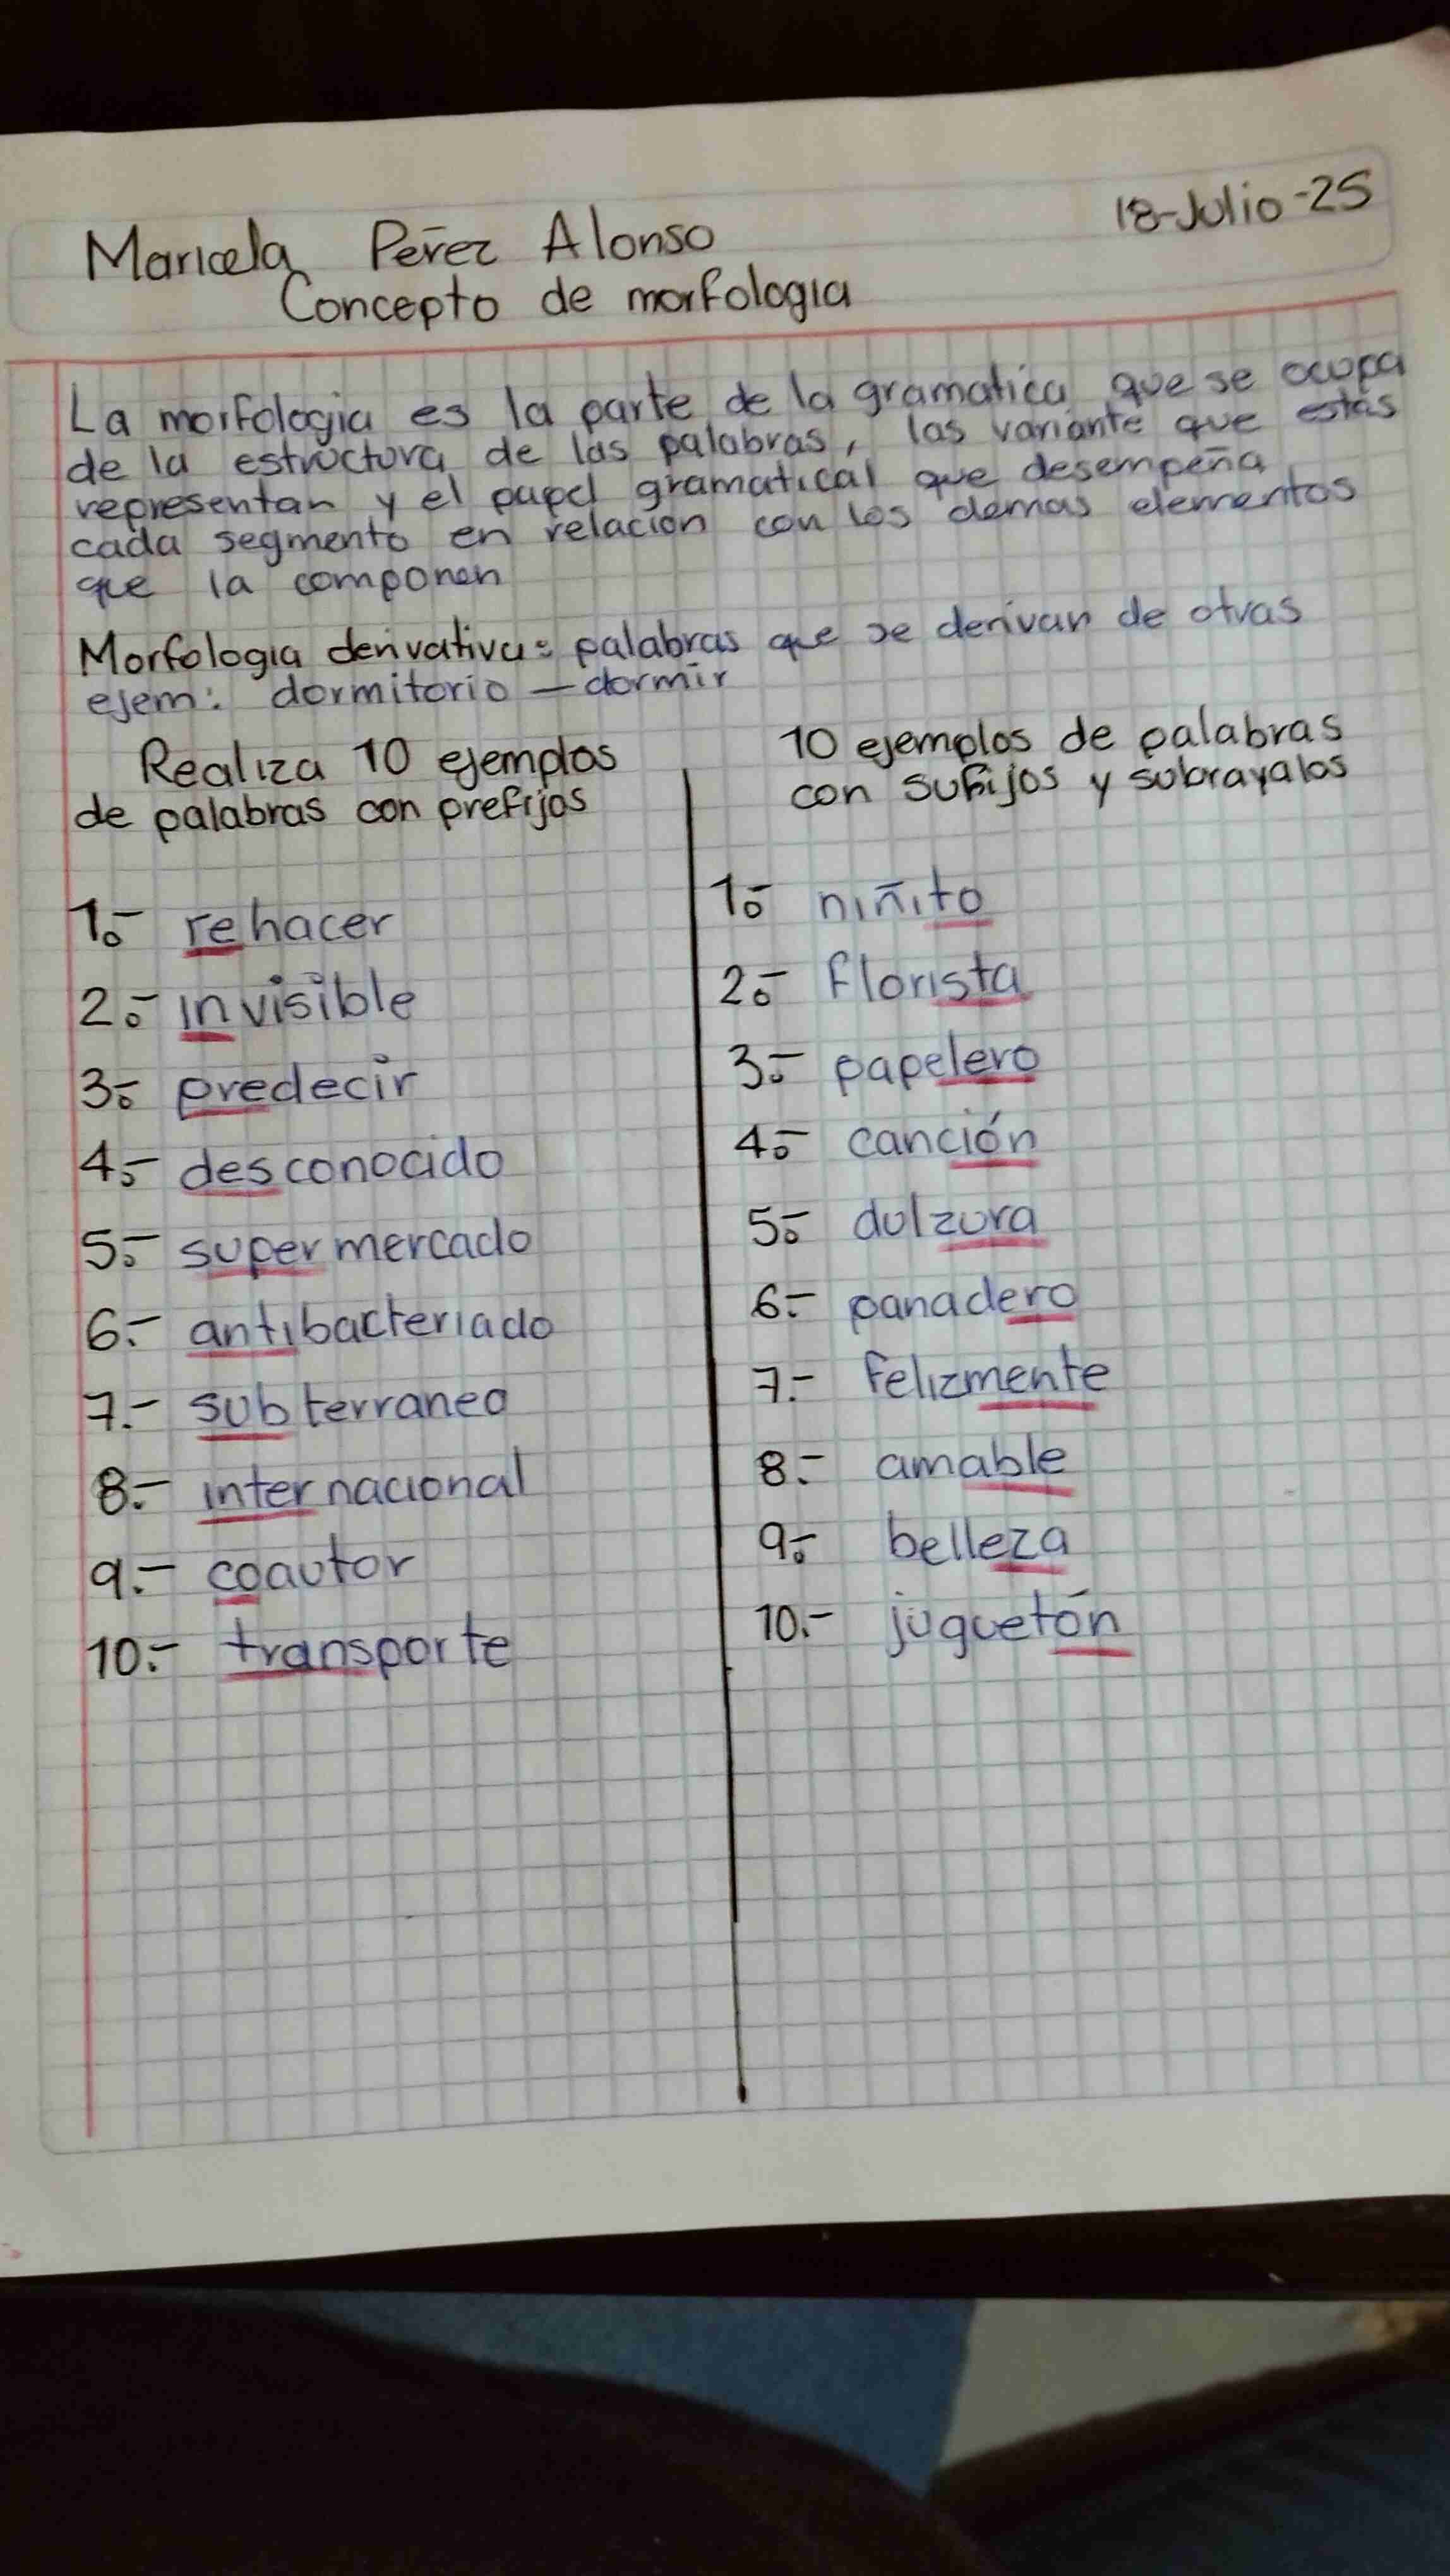 18-Julio-25
Maricela Pérez Alonso
Concepto de morfologia
La morfologia es la parte de la gramatica que se ocupa
de la estructura de las palabras, las variante que estas
representan y el papel gramatical que desempeña
cada segmento en relacion con los demas elementos
que la componen
Morfologia derivativa: palabras que se derivan de otras
ejem: dormitorio — dormir
Realiza 10 ejemplos
de palabras con prefijos
1.- rehacer
2.- invisible
3.- predecir
4.- desconocido
5.- supermercado
6.- antibacteriado
7.- subterraneo
8.- internacional
9.- coautor
10.- transporte
10 ejemplos de palabras
con sufijos y subrayalos
1.- niñito
2.- florista
3.- papelero
4.- canción
5.- dulzura
6.- panadero
7.- felizmente
8.- amable
9.- belleza
10.- juguetón